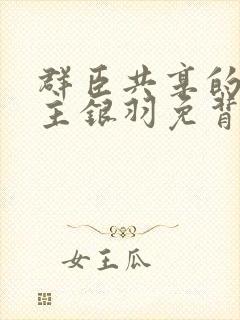 群臣共享的
主银羽免背
女王瓜